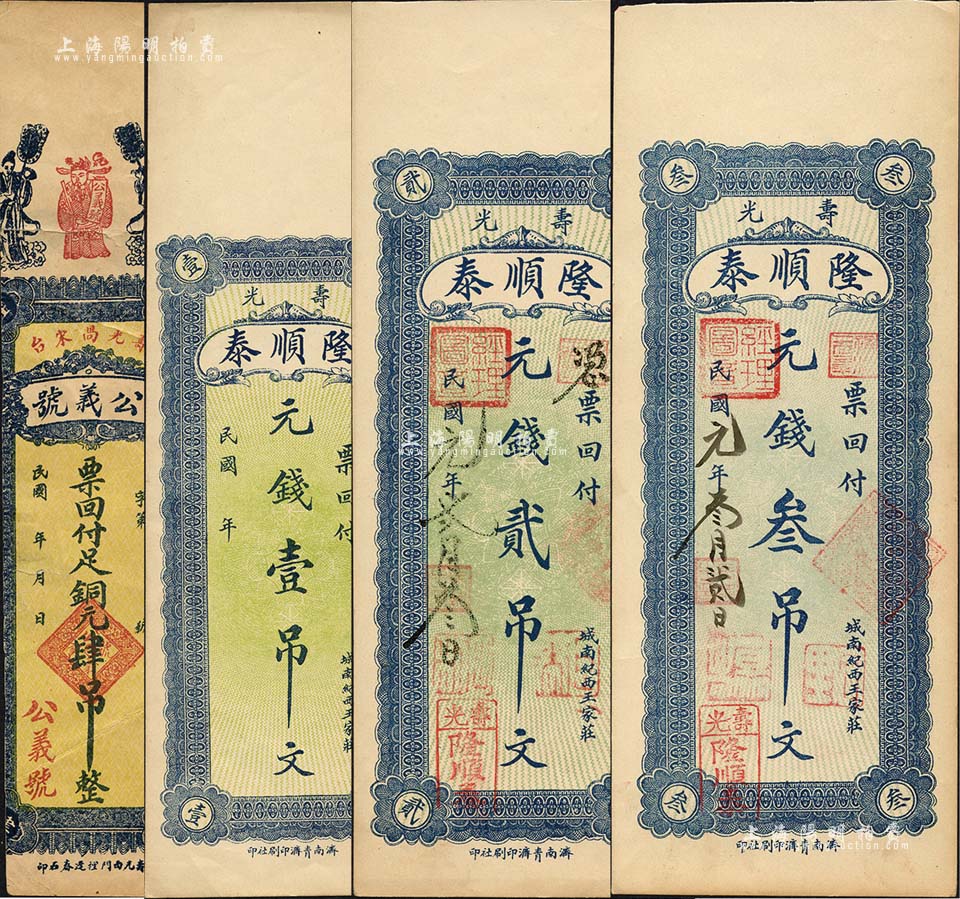 上海陽明拍賣
www.yangmingauction.com
公義號
票回付足銅元肆吊整
民國 年 月 日
公義號
壹
壽光
隆順泰
票回付
元錢壹吊文
民國 年
城南紀西王家莊
壹
濟南青濟印刷社印
貳
壽光
隆順泰
憑票回付
元錢貳吊文
經理圖
民國元年
城南紀西王家莊
壽光
隆順
貳
濟南青濟印刷社印
上海陽明拍賣
www.yangmingauction.com
叁
叁
壽光
隆順泰
票回付
元錢叁吊文
經理圖
民國元年叁月貳日
城南紀西王家莊
壽光
隆順
叁
叁
濟南青濟印刷社印
上海陽明拍賣
www.yangmingauction.com